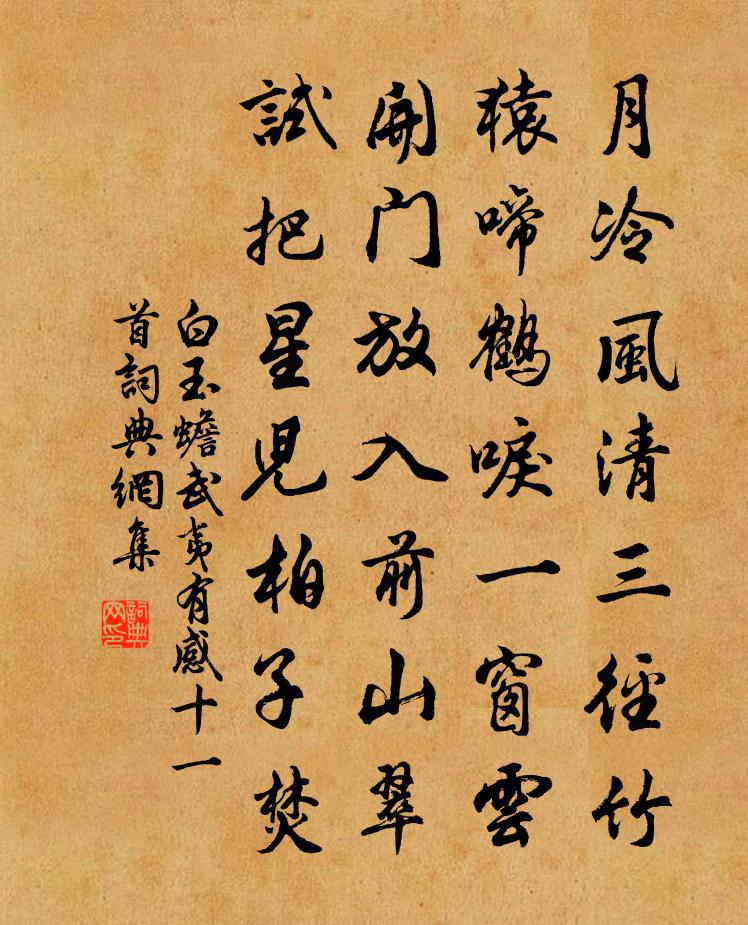 月冷風清三徑竹
猿啼鶴唳一窗雲
開门放入前山翠
試把星兒柏子焚
白玉蟾武夷有感十一
首詞典網集
詞典网印